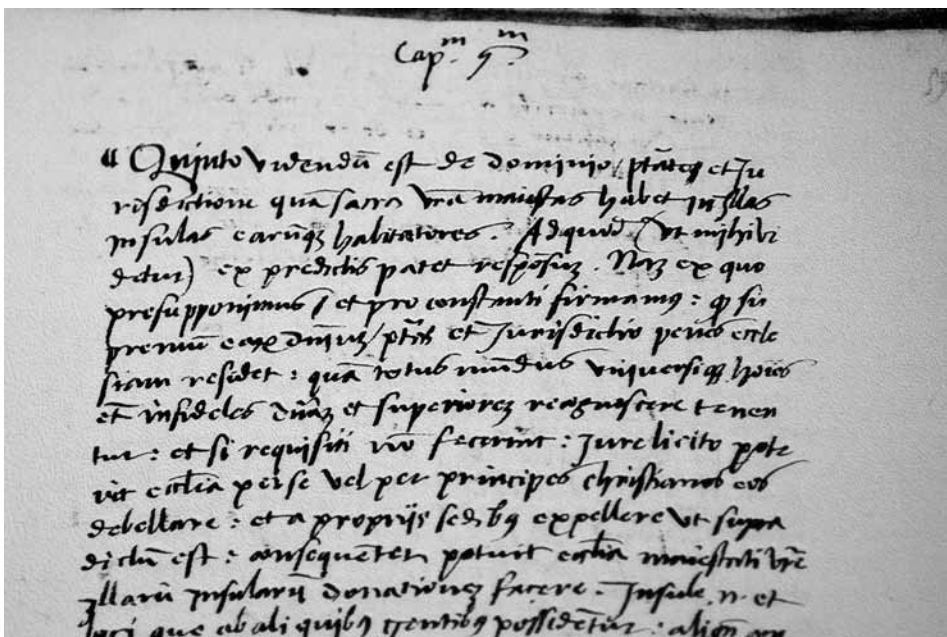 Capm. 5m.
Quinto videndū est de dominio / ptāte et Ju
risdictione quā sacra vrā maiestas habet in illas
insulas earūqz habitatores. Ad quod (ut mihi vi
detur) ex predictis patet respōsuz. Naz ex quo
presupponimus / et pro constanti firmamus: qp su
premū earz dmiuz / ptās et Jurisdictio penes eccle
siam residet: quā totus mūdus vniuersiqz hoīes
etiā infideles dnāz et superiorez recognoscere tenen
tur: et si requisiti nō fecerint: Jure licito pote
rit ecclīa per se vel per principes christianos eos
debellare: et a proprijs sedibq expellere vt supra
dictū est: consequenter potuit ecclīa maiestati vrē
illarū insularū donationez facere. Insule .n. et
loci que ab aliquibq gentibq possidētur: